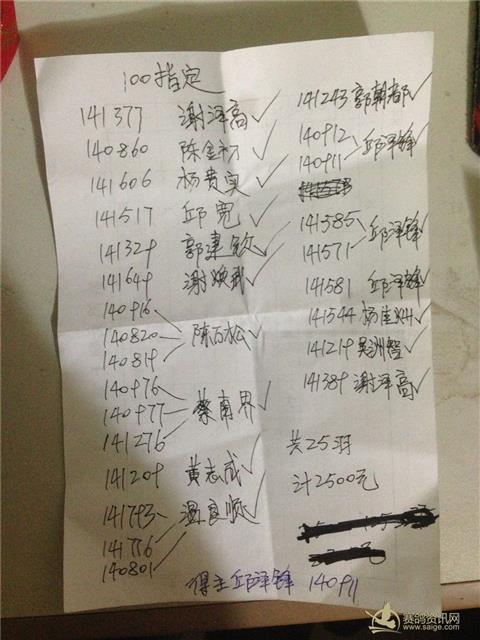 100指定
141377 谢泽高
140860 陈金初
141606 杨贵
141517 邱宽
141329 郭建钦
141649 谢焕武
140916
140820 陈百松
140819
140976
140977 蔡南界
141276
141209 黄志成
141793 温良顺
141776
140801
141243 郭朝郡
140912
140911 邱泽锋
141585
141571 邱泽锋
141581 邱泽锋
141544 杨佳
141219 吴洲智
141389 谢泽高
共25羽
计2500元
得主邱泽锋 140911
赛鸽资讯网
www.saige.com